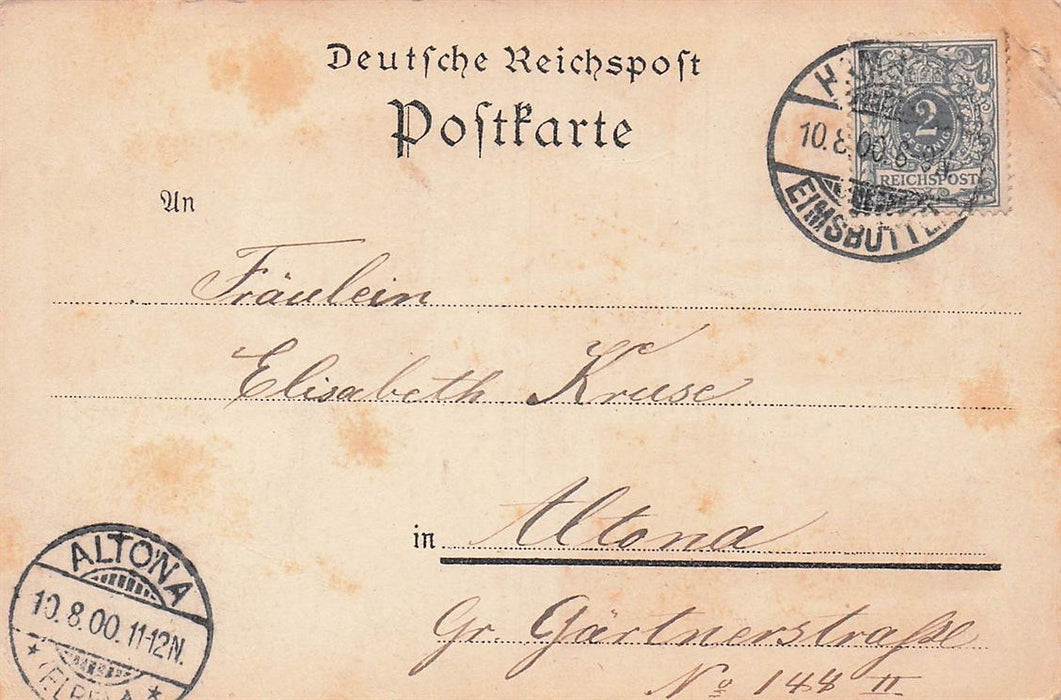 Deutsche Reichspost
Postkarte
2
PFENNIG
REICHSPOST
10.8.00. 8-9N.
EIMSBÜTTEL
An
Fräulein
Elisabeth Kruse
in Altona
Gr. Gärtnerstraße
No 148 II
ALTONA
10.8.00.11-12N.